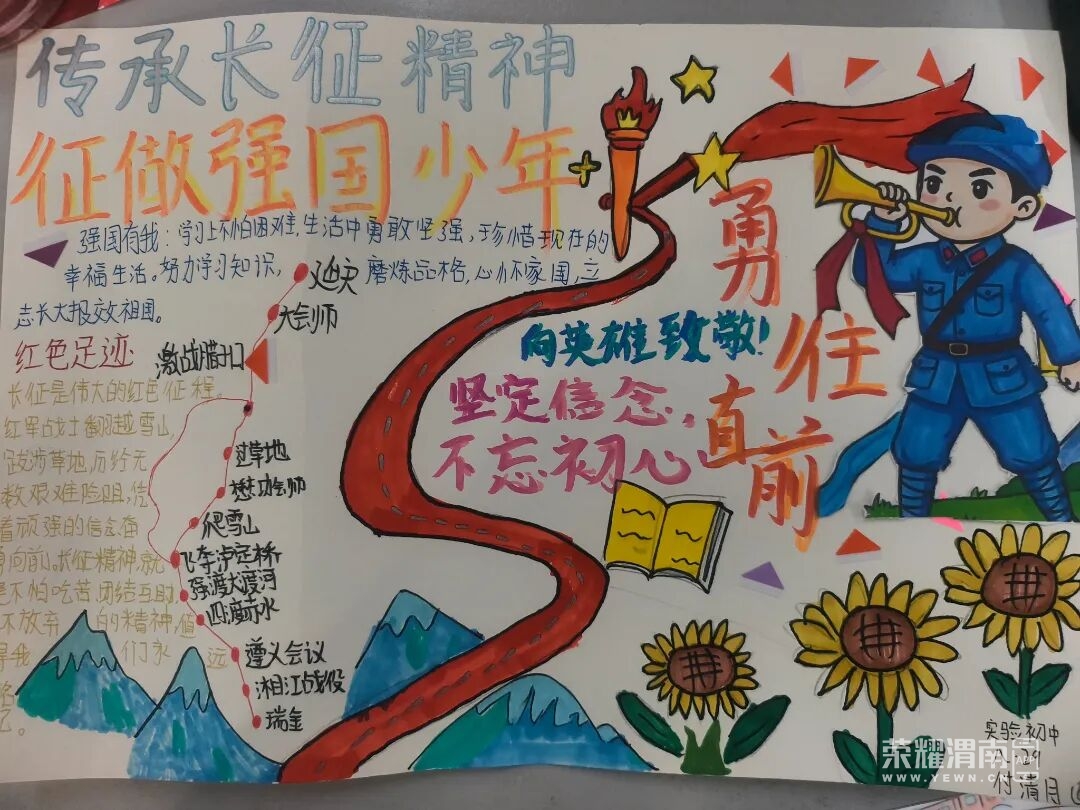 传承长征精神
征做强国少年
强国有我：学习上不怕困难，生活中勇敢坚强，珍惜现在的
幸福生活。努力学习知识，磨炼品格，心怀家国，立
志长大报效祖国。
红色足迹
长征是伟大的红色征程。
红军战士翻越雪山，
跋涉草地，历经无
数艰难险阻，凭
着顽强的信念奋
勇向前。长征精神就
是不怕吃苦，团结互助，
不放弃的精神，值
得我们永远
大会师
激战腊子口
过草地
懋功会师
爬雪山
飞夺泸定桥
强渡大渡河
四渡赤水
遵义会议
湘江战役
瑞金
向英雄致敬！
坚定信念，
不忘初心
勇
往
直
前
实验初中
付清月
荣耀渭南
WWW.YEWN.CN